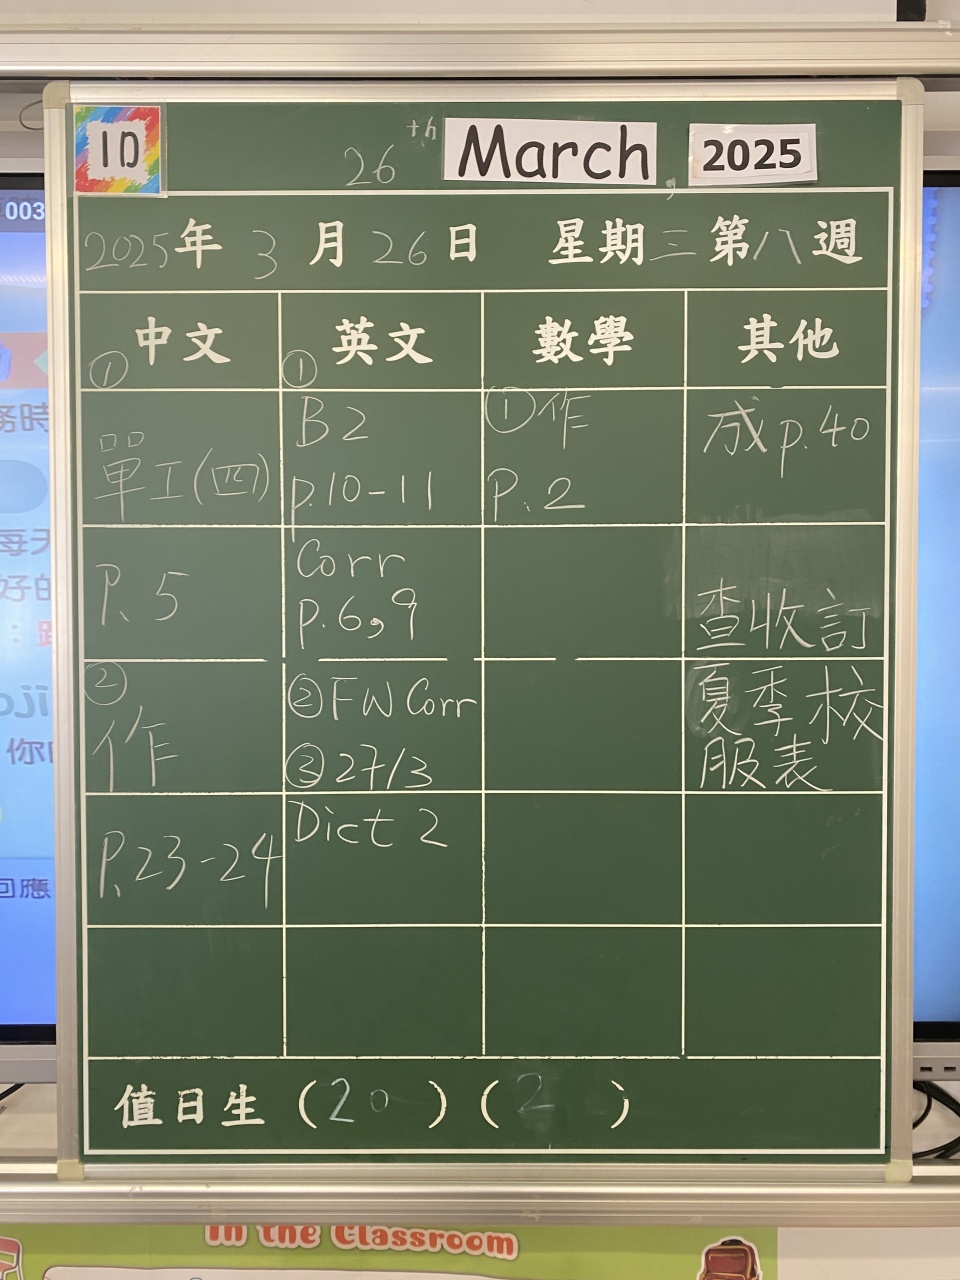 1D
26th March, 2025
003
2025年 3月26日 星期三第八週
中文 英文 數學 其他
① 單工(四)
P.5
② 作
P.23-24
① B2
p.10-11
Corr
p.6,9
② FW Corr
③ 27/3
Dict 2
① 作
P.2
成 p.40
查收訂
夏季校
服表
值日生 (20) (2)
In the Classroom
務時
每天
好的
你
回應